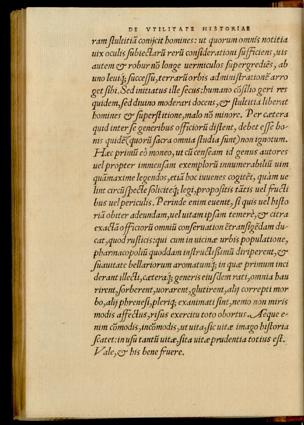 DE VTILITATE HISTORIAE
ram stultitiam conijcit homines: ut quorum omnis notitia
uix oculis subiectarũ rerũ considerationi sufficiens, uis
autem & robur nõ longe uermiculos supergrediẽs, ab
uno leuiq; successu, terrarũ orbis administrationẽ arro
get sibi. Sed initiatus ille secus: humano cõsilio geri res
quidem, sed diuino moderari docens, & stultitia liberat
homines & superstitione, malo nõ minore. Per cætera
quid inter se generibus officiorũ distent, debet esse bo-
nis quidẽ (quorũ sacra omnia studia sunt) non ignotum.
Hæc primũ eò moneo, ut cũ censeam id genus autores
uel propter immensam exemplorũ innumerabiliũ uim
quàmmaxime legendos, etiã hoc iuuenes cogitẽt, quàm ue
lint circũspecte soliciteq; legi, propositis tãtis uel fructi
bus uel periculis. Perinde enim euenit, si quis uel histo
riã obiter adeundam, uel uitam ipsam temerè, & citra
exactã officiorũ omniũ conseruationẽ trãsigẽdam du-
cat, quod rusticis qui cum in uicinæ urbis populatione,
pharmacopoliũ quoddam instructissimũ diriperent, &
suauitate bellariorum aromatumq; in quæ primum inci
derant illecti, cæteraq; generis eiusdem rati, omnia hau
rirent, sorberent, uorarent, glutirent, alij correpti mor
bo, alij phrenesi, pleriq; exanimati sint, nemo non miris
modis affectus, risus exercitu toto obortus. Aeque e-
nim cõmodis, incõmodis, ut uita, sic uitæ imago historia
scatet: in usu tantũ uitæ, sita uitæ prudentia totius est.
Vale, & his bene fruere.